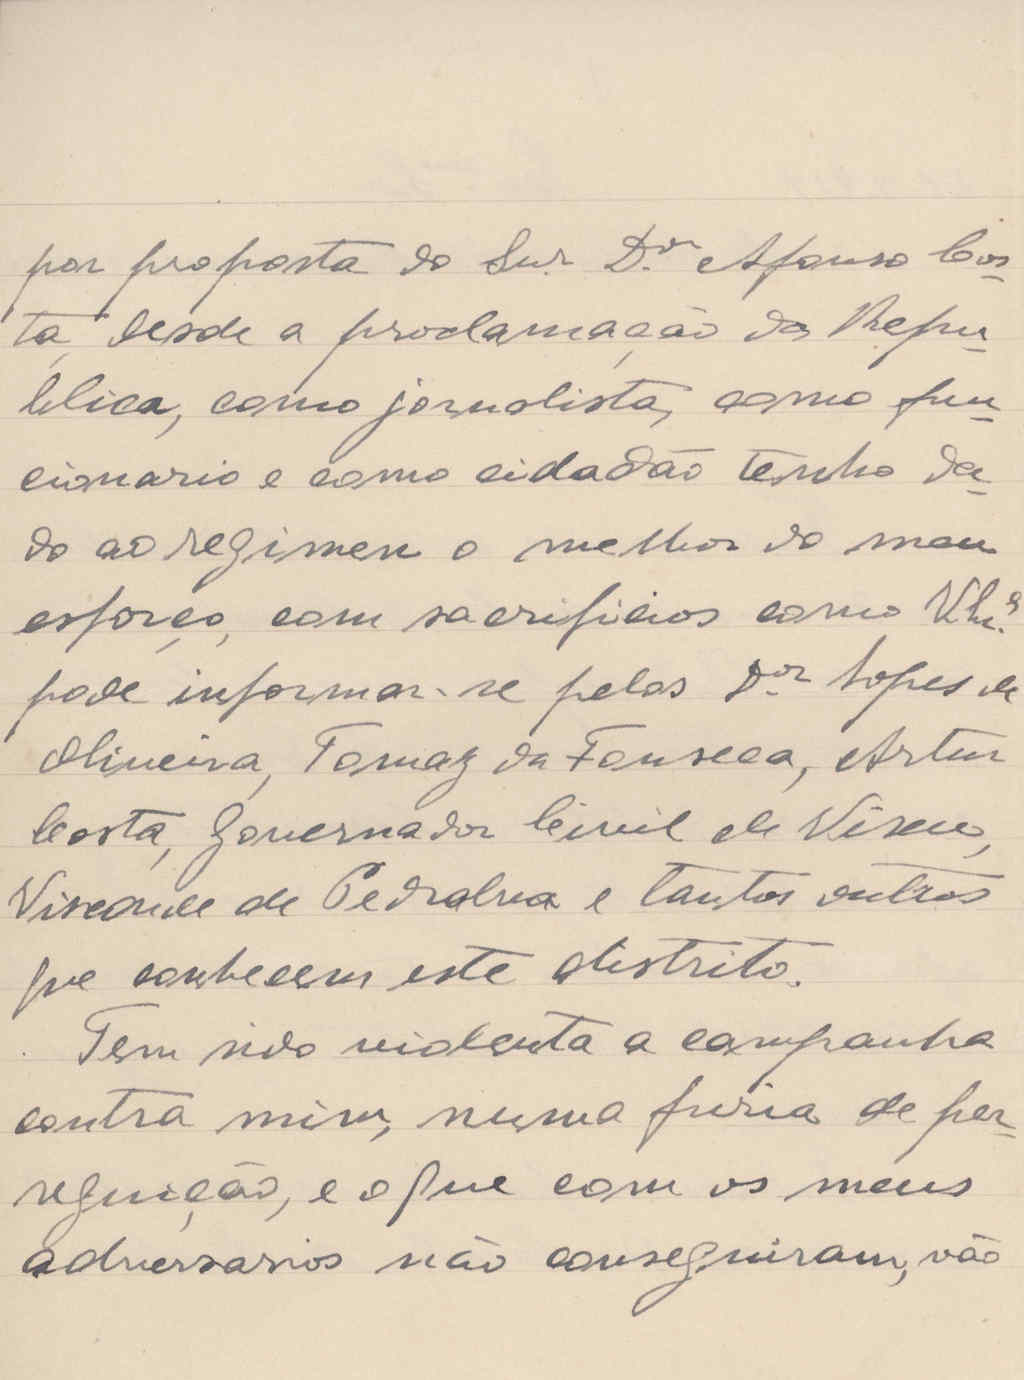 por proposta do Snr. D.or Afonso Cos-
ta, desde a proclamação da Repu-
blica, como jornalista, como fun-
cionario e como cidadão tenho da-
do ao regimen o melhor do meu
esforço, com sacrificios como V.
pode informar-se pelos D.or Lopes de
Oliveira, Tomaz da Fonseca, Artur
Costa, Governador Civil de Viseu,
Visconde de Pedralva e tantos outros
que conhecem este distrito.
Tem sido violenta a campanha
contra mim, numa furia de per-
seguição, e o que com os meus
adversarios não conseguiram, vão